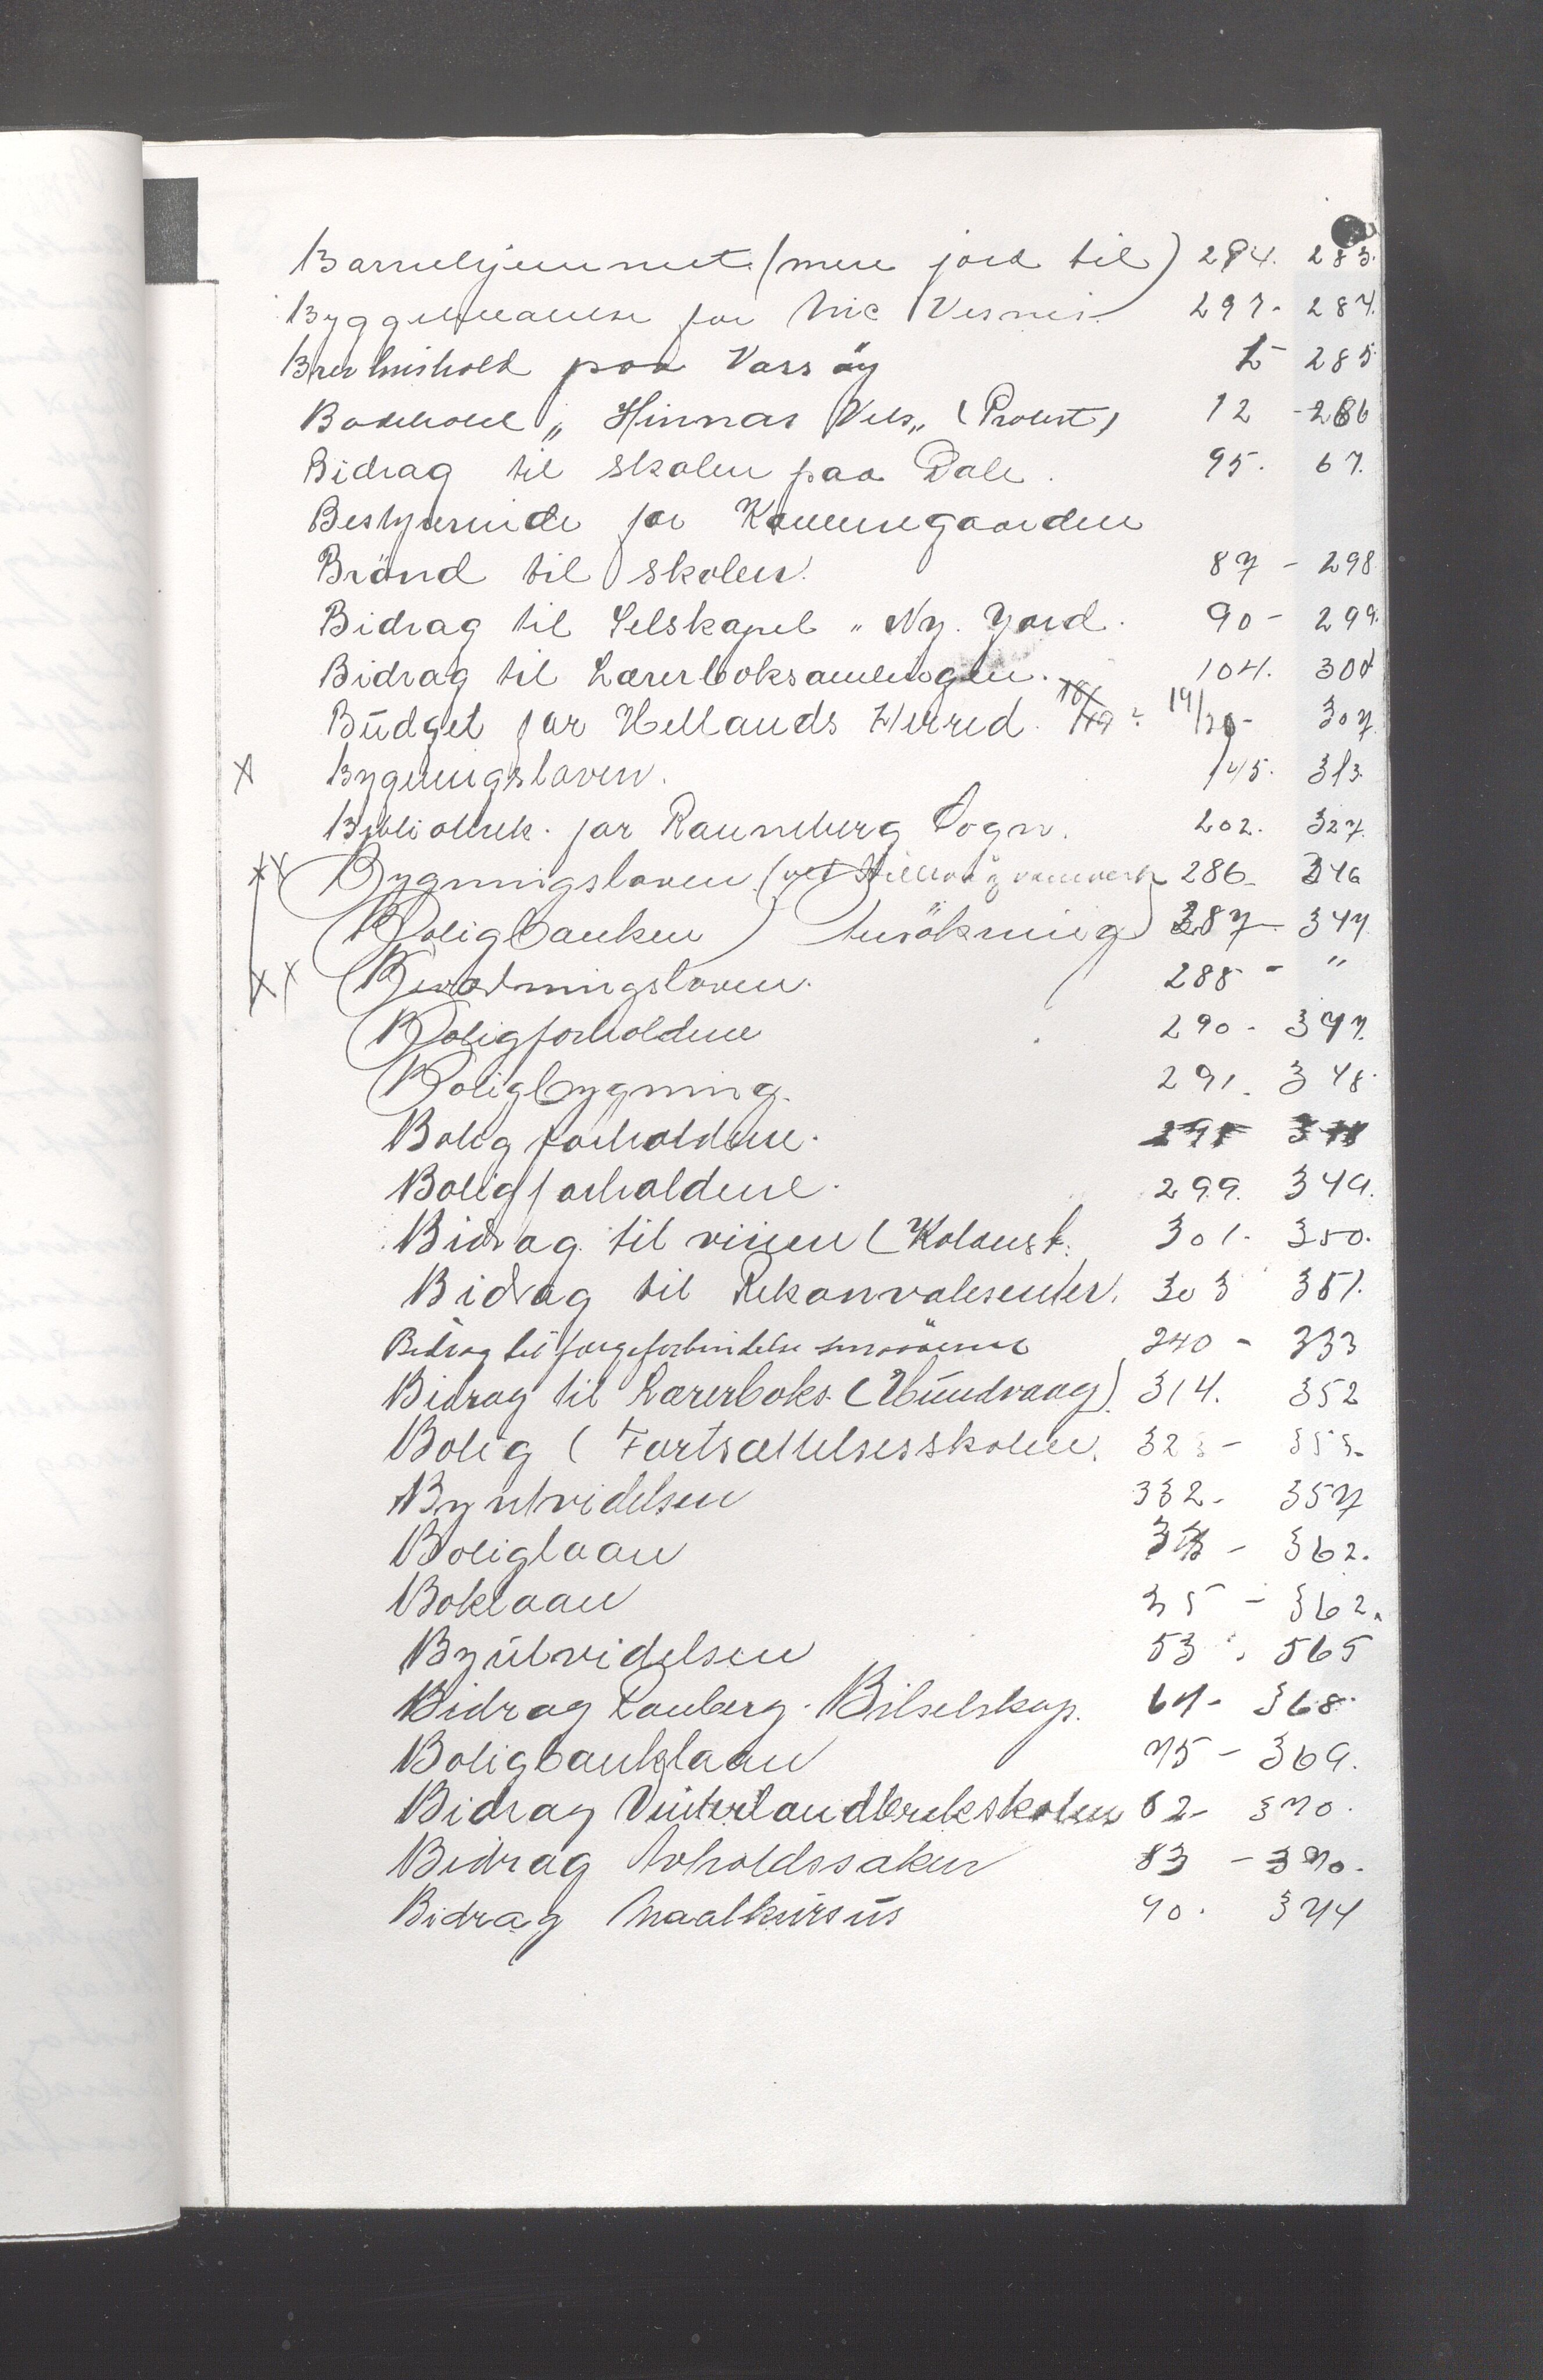 Barnehjemmet (mere jord til) 294. 283.
for Nic 297 - 284.
paa Vassöy 5 - 285
" Hinnas Vels „ (Protest) 12 - 286
Bidrag til skolen paa Dale. 95. 67.
Bestyrerinde for Kommunegaarden
Brönd til skolen. 87 - 298
Bidrag til Selskapet " Ny Jord. 90 - 299.
Bidrag til Lærerboksamlingen. 104. 301
Büdget for Hetlands Herred. 18/19 : 19/20 - 307
x Bygningsloven. 145. 313.
Bibliothek for Raunneberg Sogn. 202. 327.
xx Bygningsloven (ved 286 - 346
Boligbanken) Ansökning) 287 - 347
xx Bevæbningsloven. 288 - "
Boligforholdene 290 - 347.
Boligbygning. 291. 348.
Boligforholdene.
Boligforholdene. 299. 349.
Bidrag til (Kolonist. 301. 350.
Bidrag til Rekonvalesenter. 303 351.
Bidrag til færgeforbindelse 240 - 333
Bidrag til Lærerboks. (Hündvaag). 314. 352
Bolig (Fortsættelsesskolen. 323 - 353.
Byutvidelsen 332 - 357
Boliglaan - 362.
Boklaan 35 - 362.
Byütvidelsen 53. 565
Bidrag Bilselskap. 67 - 368.
Boligbanklaan 75 - 369.
Bidrag Vinterlandbrukskolen 82 - 370.
Bidrag Avholdssaken 83 - 370.
Bidrag Maalkürsüs 90. 374